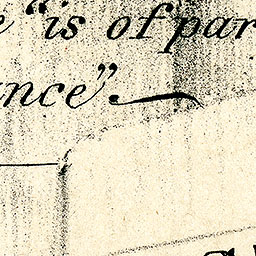 “is of par
ance”